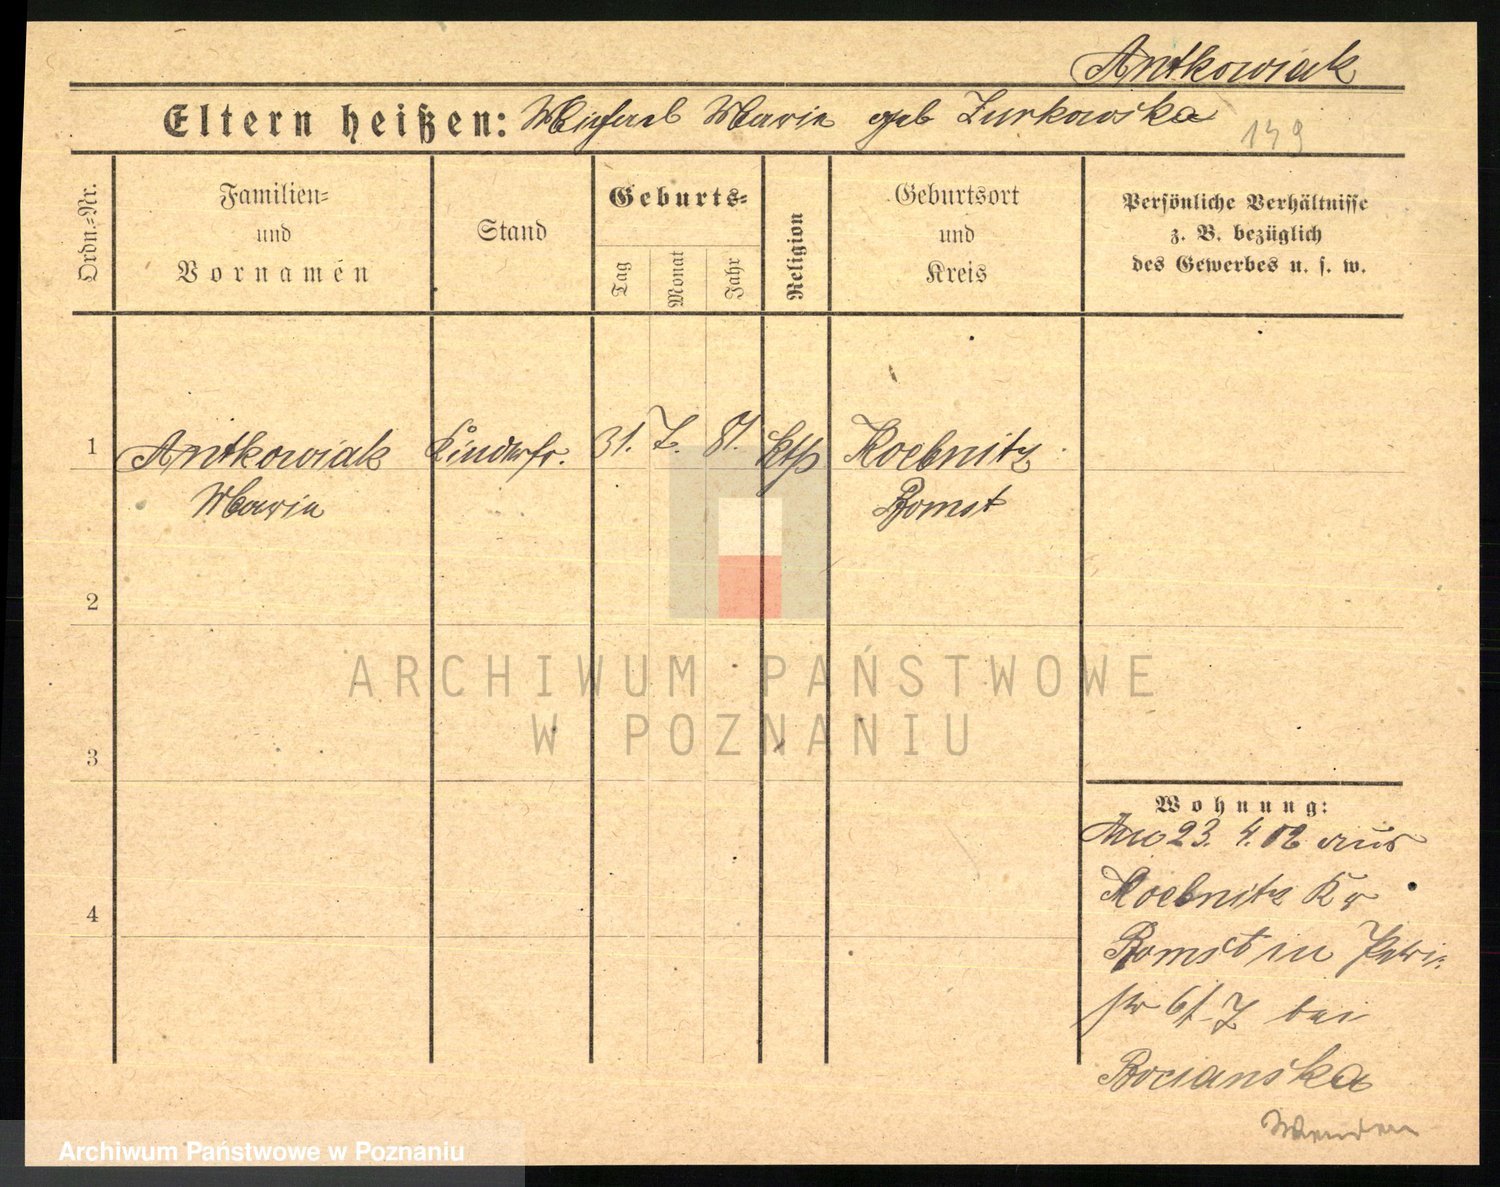 Antkowiak
Eltern heißen: Michael Marie geb Zurkowska
149
Ordn.=Nr.
Familien=
und
Vornamen
Stand
Geburts=
Tag
Monat
Jahr
Religion
Geburtsort
und
Kreis
Persönliche Verhältnisse
z. B. bezüglich
des Gewerbes u. s. w.
1
Antkowiak Kinderfr. 31. 7. 81. kth Koebnitz
Marie Bomst
2
3
4
ARCHIWUM PAŃSTWOWE
W POZNANIU
Wohnung:
23. 4. 02 aus
Koebnitz Kr
Bomst in
bei
Bocianska
Archiwum Państwowe w Poznaniu